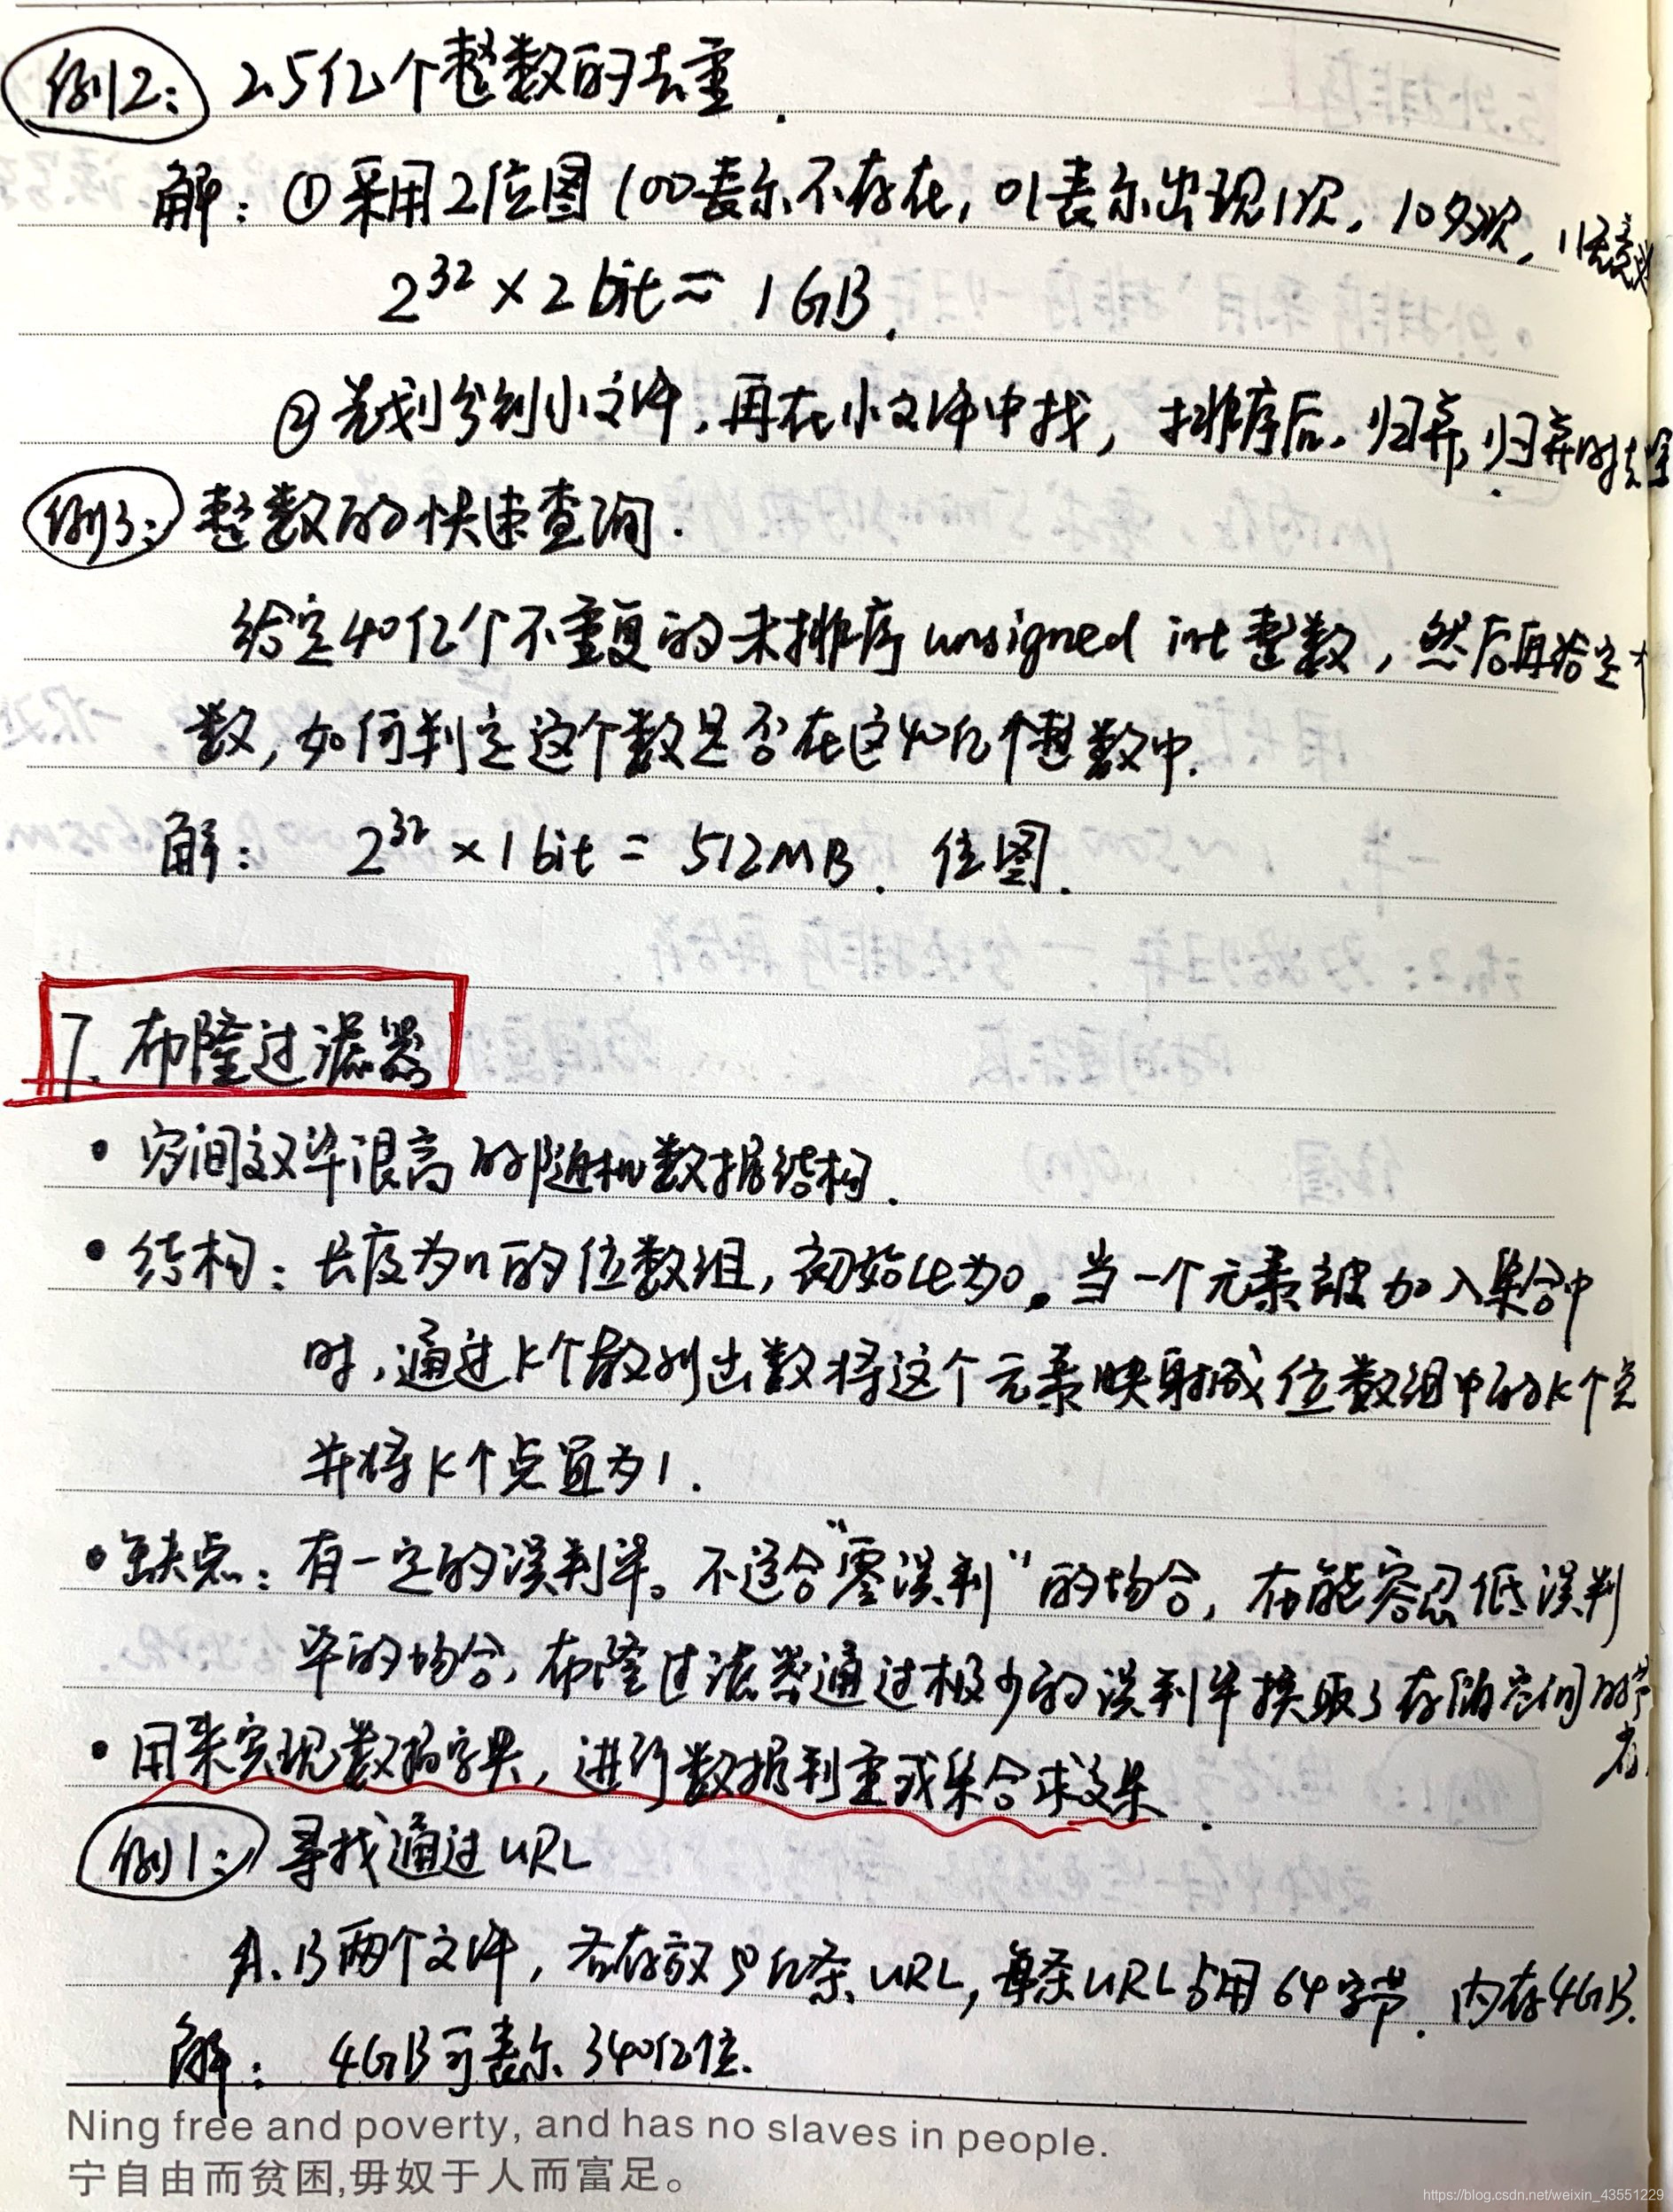 例2: 2.5亿个整数的去重.
解: ①采用2位图(00表示不存在, 01表示出现1次, 10多次, 11无意义
2^32 × 2 bit ≈ 1GB.
②先划分到小文件, 再在小文件中找, 排序后, 归并, 归并时去重
例3: 整数的快速查询.
给定40亿个不重复的未排序 unsigned int 整数, 然后再给定个
数, 如何判定这个数是否在这40亿个整数中.
解: 2^32 × 1 bit = 512MB. 位图.
7. 布隆过滤器
• 空间效率很高的随机数据结构.
• 结构: 长度为n的位数组, 初始化为0。当一个元素被加入集合中
时, 通过K个散列函数将这个元素映射成位数组中的K个点
并将K个点置为1.
• 缺点: 有一定的误判率。不适合"零误判"的场合, 在能容忍低误判
率的场合, 布隆过滤器通过极少的误判率换取了存储空间的节
省.
• 用来实现数据字典, 进行数据判重或集合求交集.
例1: 寻找通过URL
A、B两个文件, 各存放50亿条URL, 每条URL占用64字节. 内存4GB.
解: 4GB可表示340亿位.
Ning free and poverty, and has no slaves in people.
宁自由而贫困,毋奴于人而富足。
https://blog.csdn.net/weixin_43551229